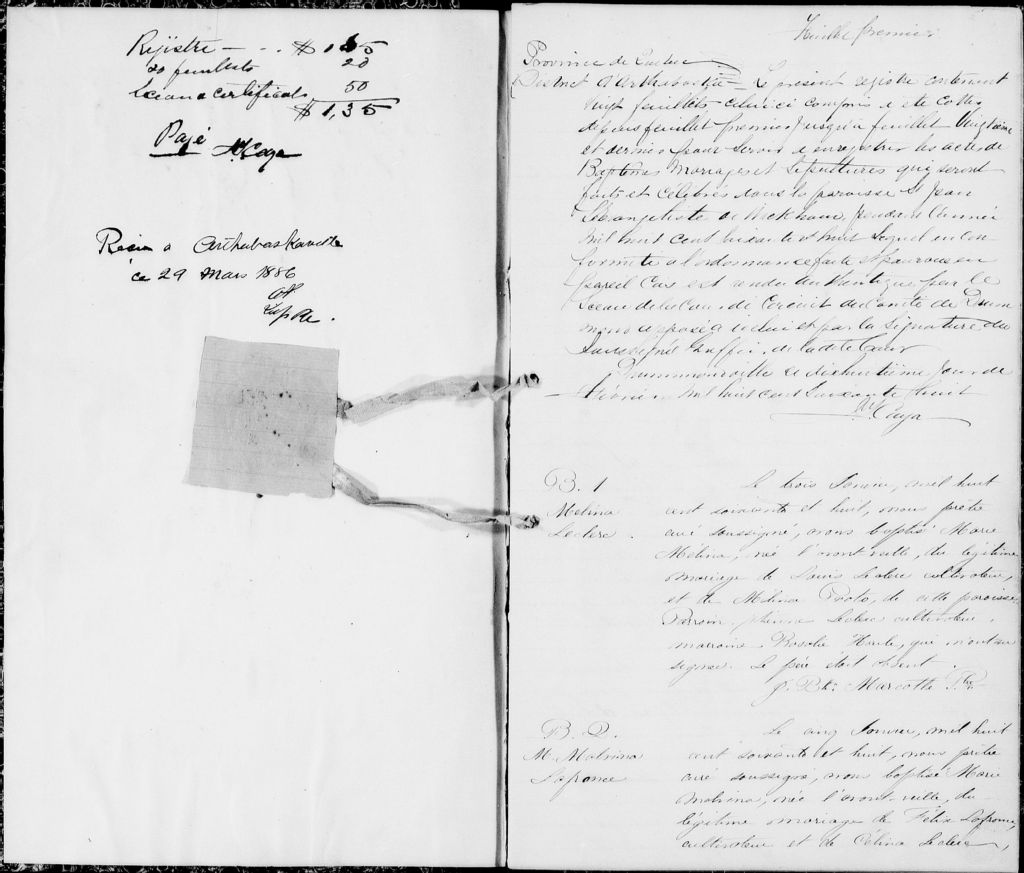 Régistre — . . $ 1 5
20 feuillets 20
Sceau & certificats 50
$ 1,35
Payé
Reçu à Arthabaskaville
ce 29 Mars 1886
Feuillet premier
Province de Québec
District d'Arthabaska Le présent régistre contenant
vingt feuillets celui ci compris a été cotté
depuis feuillet premier jusqu'à feuillet Vingtième
et dernier pour servir à enregistrer les actes de
Baptêmes Mariages et Sépultures qui seront
faits et célébrés dans la paroisse St Jean
L'Evangeliste de Wickham, pendant l'année
mil huit cent soixante et huit lequel en con
formité à l'ordonnance faite et pourvue en
pareil cas est rendu authentique par le
Sceau de la Cour de Circuit du Comté de Drum
mond apposé à icelui et par la Signature du
Soussigné Greffier de ladite Cour
Drummondville ce dixhuitième jour de
mil huit cent soixante & huit
B. 1
Mélina
Leclerc .
Le trois Janvier, mil huit
cent soixante et huit, nous prêtre
curé soussigné, avons baptisé Marie
Mélina, née l'avant-veille, du légitime
mariage de Louis Leclerc cultivateur,
et de Mélina Proto, de cette paroisse.
Parrain Leclerc cultivateur,
marraine Rosalie Houle, qui n'ont su
signer. Le père était absent.
J. Bte. Marcotte Ptre
B. 2.
M. Malvina
Lafrance
Le cinq Janvier, mil huit
cent soixante et huit, nous prêtre
curé soussigné, avons baptisé Marie
Malvina, née l'avant-veille, du
légitime mariage de Félix Lafrance,
cultivateur et de Célina Leclerc,